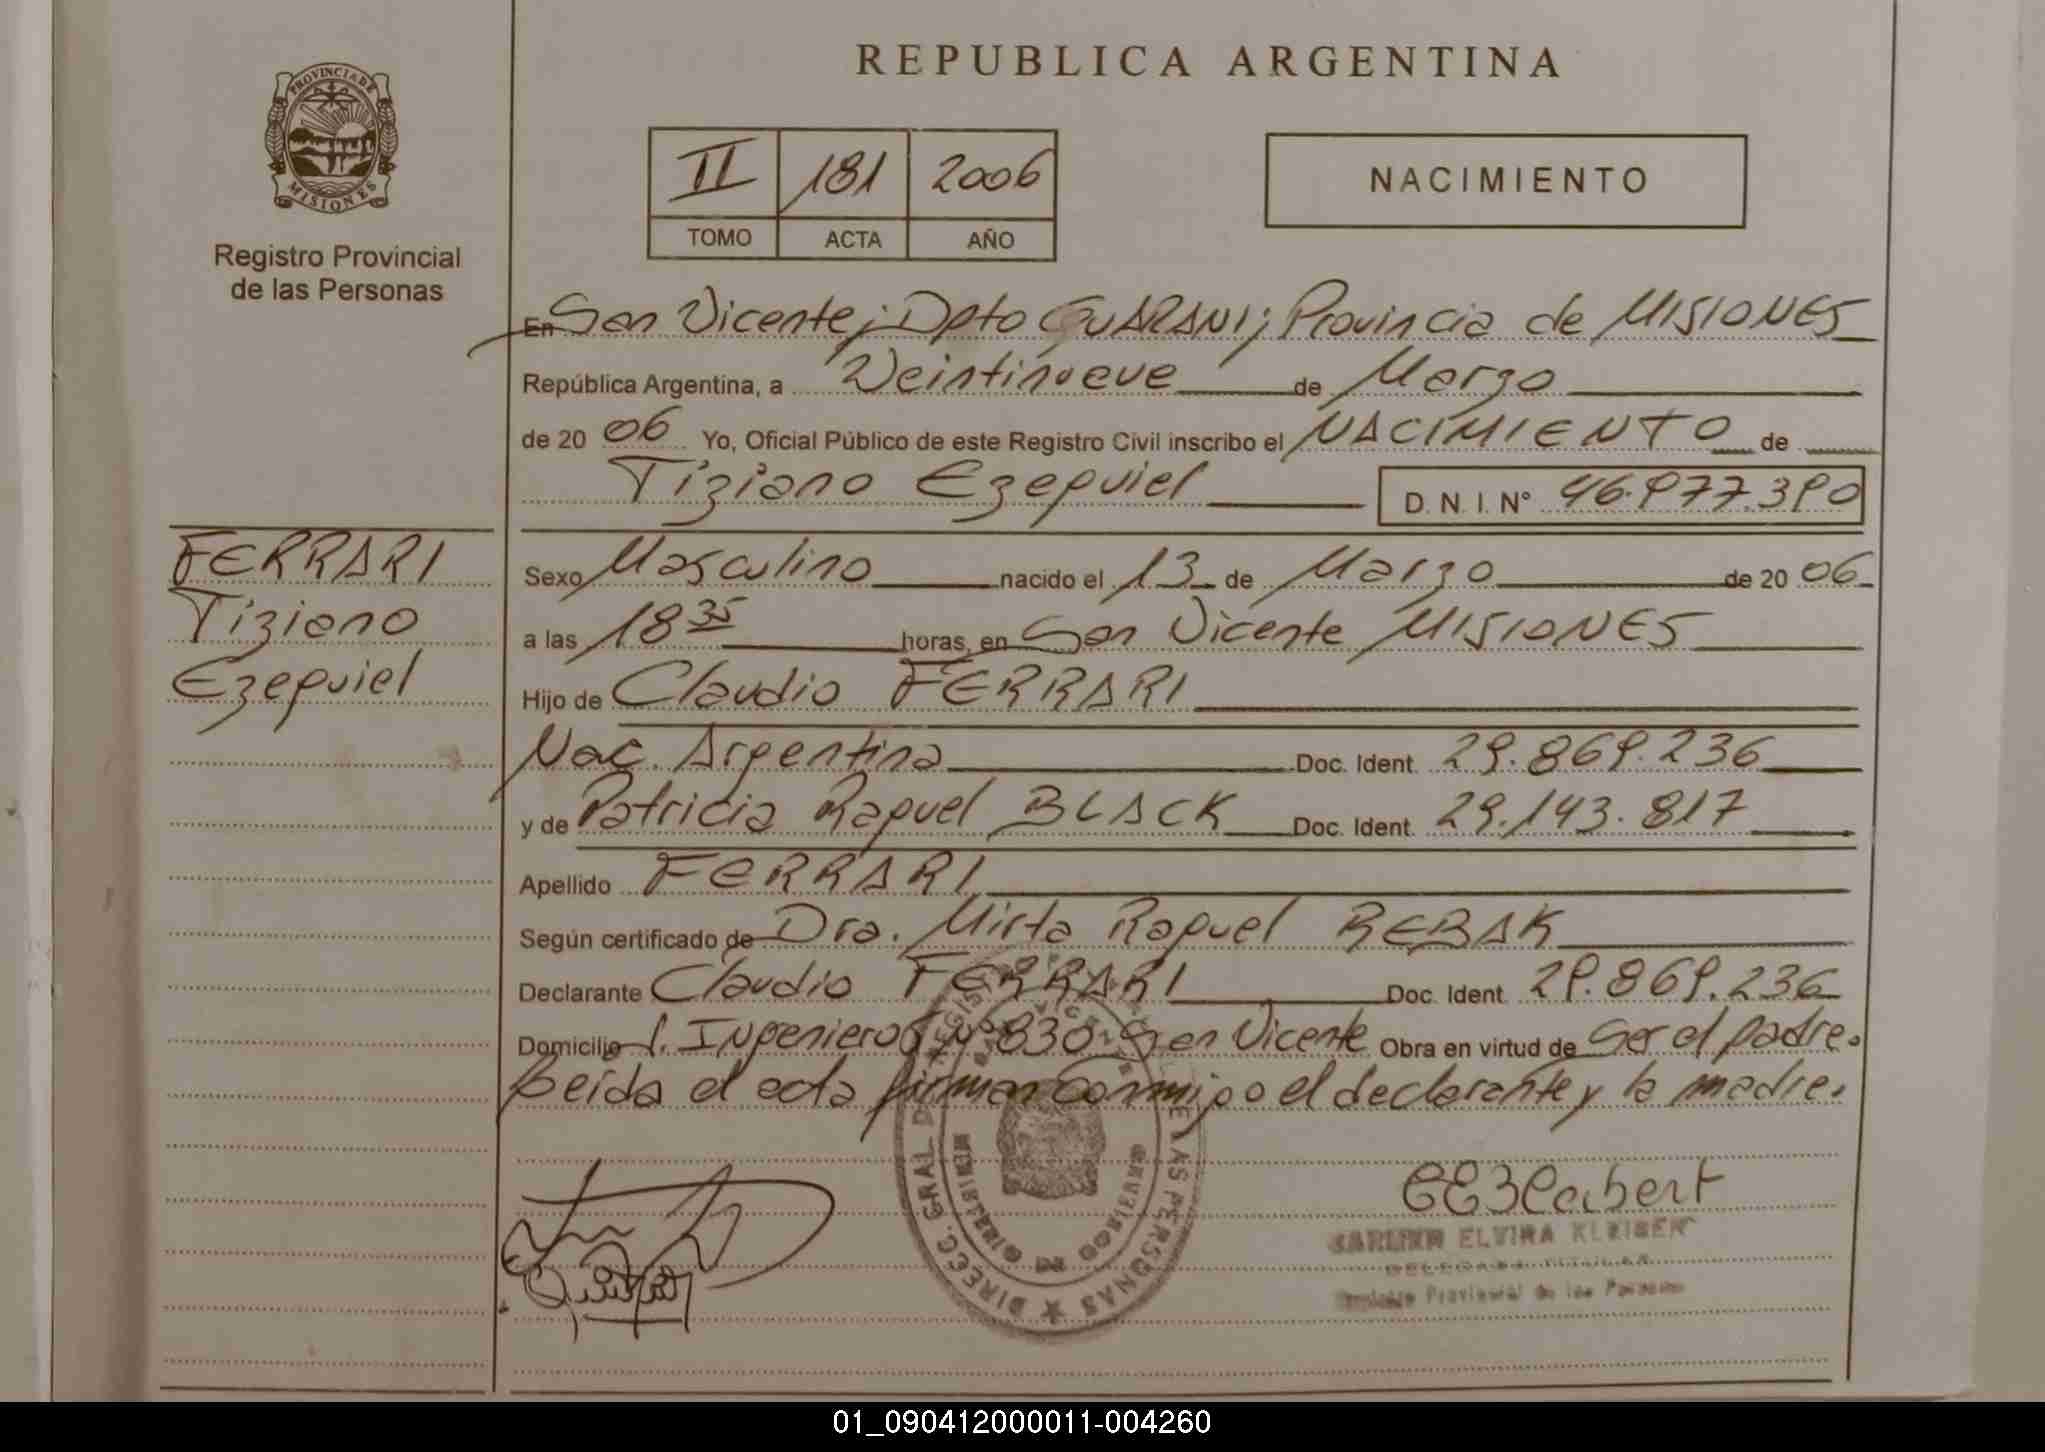 PROVINCIA DE
MISIONES
Registro Provincial
de las Personas
REPUBLICA ARGENTINA
II 181 2006
TOMO ACTA AÑO
NACIMIENTO
En San Vicente; Dpto GUARANI; Provincia de MISIONES
República Argentina, a Veintinueve de Marzo
de 20 06 Yo, Oficial Público de este Registro Civil inscribo el NACIMIENTO de
Tiziano Ezequiel D. N. I. N° 46.977.390
FERRARI
Tiziano
Ezequiel
Sexo Masculino nacido el 13 de Marzo de 20 06
a las 18 35 horas, en San Vicente MISIONES
Hijo de Claudio FERRARI
Nac. Argentina Doc. Ident. 29.869.236
y de Patricia Raquel BLACK Doc. Ident. 29.143.817
Apellido FERRARI
Según certificado de Dra. Mirta Raquel REBAK
Declarante Claudio FERRARI Doc. Ident. 29.869.236
Domicilio J. Ingenieros Nº 830 San Vicente Obra en virtud de Ser el padre.
Leída el acta firman conmigo el declarante y la madre.
DIRECC. GRAL. DE LAS PERSONAS
MINISTERIO DE GOBIERNO
ELVIRA
Registro Provincial de las Personas
01_090412000011-004260